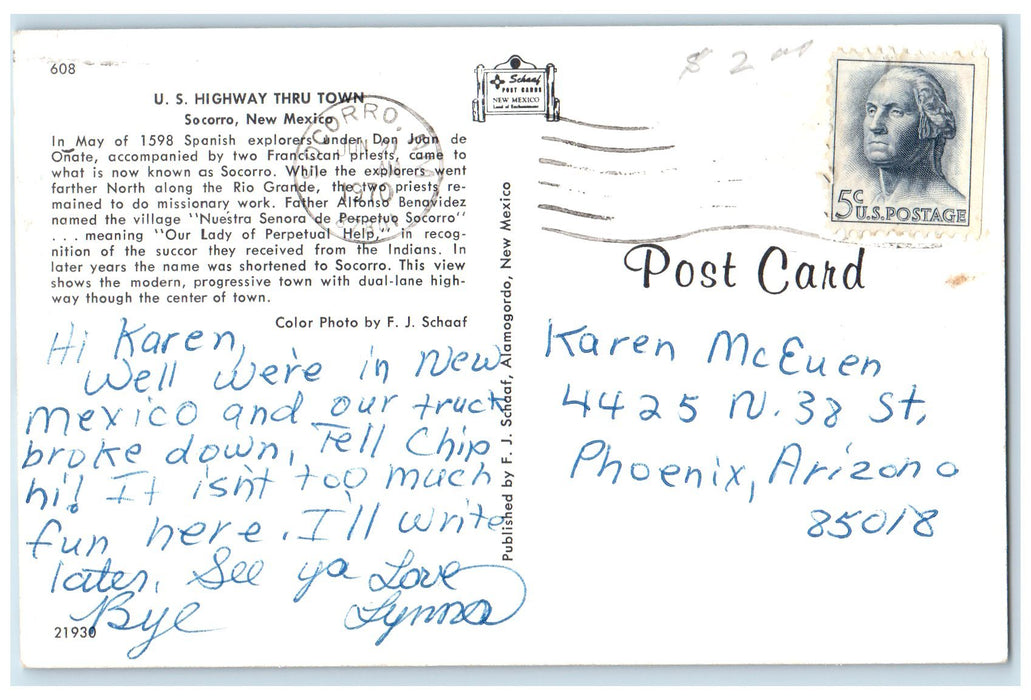 608
U. S. HIGHWAY THRU TOWN
Socorro, New Mexico
In May of 1598 Spanish explorers under Don Juan de
Onate, accompanied by two Franciscan priests, came to
what is now known as Socorro. While the explorers went
farther North along the Rio Grande, the two priests re-
mained to do missionary work. Father Alfonso Benavidez
named the village "Nuestra Senora de Perpetuo Socorro"
. . . meaning "Our Lady of Perpetual Help," in recog-
nition of the succor they received from the Indians. In
later years the name was shortened to Socorro. This view
shows the modern, progressive town with dual-lane high-
way though the center of town.
Color Photo by F. J. Schaaf
Hi Karen,
Well we're in New
mexico and our truck
broke down, Tell Chip
hi! It isn't too much
fun here. I'll write
later. See ya Love
Bye Lynna
21930
Published by F. J. Schaaf, Alamogordo, New Mexico
Schaaf
POST CARDS
NEW MEXICO
Land of Enchantment
SOCORRO, N.M.
JUN
1970
$ 2
5c U.S. POSTAGE
Post Card
Karen McEuen
4425 N. 38 St,
Phoenix, Arizona
85018